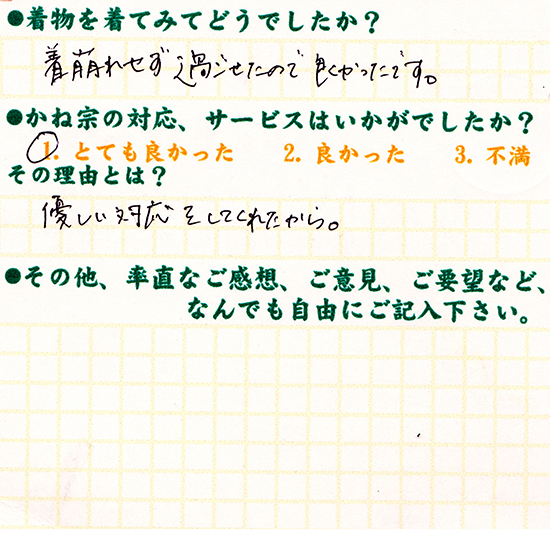 ●着物を着てみてどうでしたか?
着崩れせず過ごせたので良かったです。
●かね宗の対応、サービスはいかがでしたか?
1. とても良かった 2. 良かった 3. 不満
その理由とは?
優しい対応をしてくれたから。
●その他、率直なご感想、ご意見、ご要望など、
なんでも自由にご記入下さい。